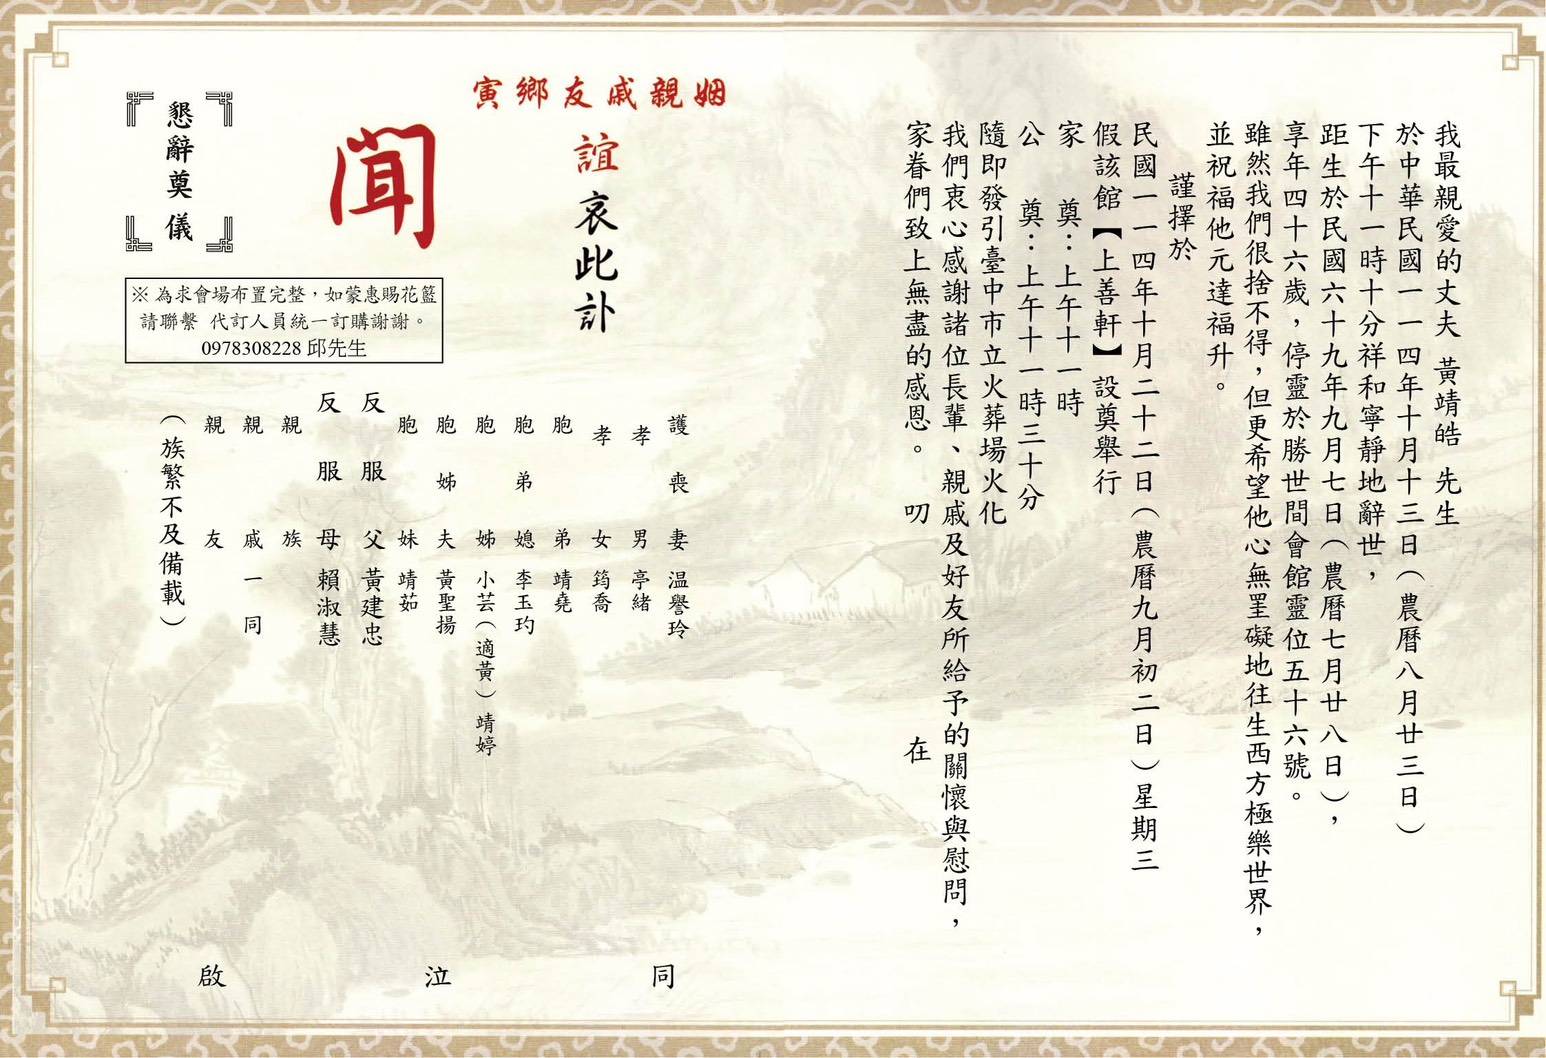 我最親愛的丈夫 黃靖皓 先生
於中華民國一一四年十月十三日（農曆八月廿三日）
下午十一時十分祥和寧靜地辭世，
距生於民國六十九年九月七日（農曆七月廿八日），
享年四十六歲，停靈於勝世間會館靈位五十六號。
雖然我們很捨不得，但更希望他心無罣礙地往生西方極樂世界，
並祝福他元達福升。
謹擇於
民國一一四年十月二十二日（農曆九月初二日）星期三
假該館【上善軒】設奠舉行
家　奠：上午十一時
公　奠：上午十一時三十分
隨即發引臺中市立火葬場火化
我們衷心感謝諸位長輩、親戚及好友所給予的關懷與慰問，
家眷們致上無盡的感恩。　叨　在
姻親戚友鄉寅
誼哀此訃
聞
懇辭奠儀
※ 為求會場布置完整，如蒙惠賜花籃
請聯繫 代訂人員統一訂購謝謝。
0978308228 邱先生
護喪妻 温譽玲
孝男 亭緒
孝女 筠喬
胞弟 靖堯
胞弟媳 李玉玓
胞姊 小芸（適黃）靖婷
胞姊夫 黃聖揚
胞妹 靖茹
反服父 黃建忠
反服母 賴淑慧
親族
親戚一同
親友
（族繁不及備載）
同泣啟